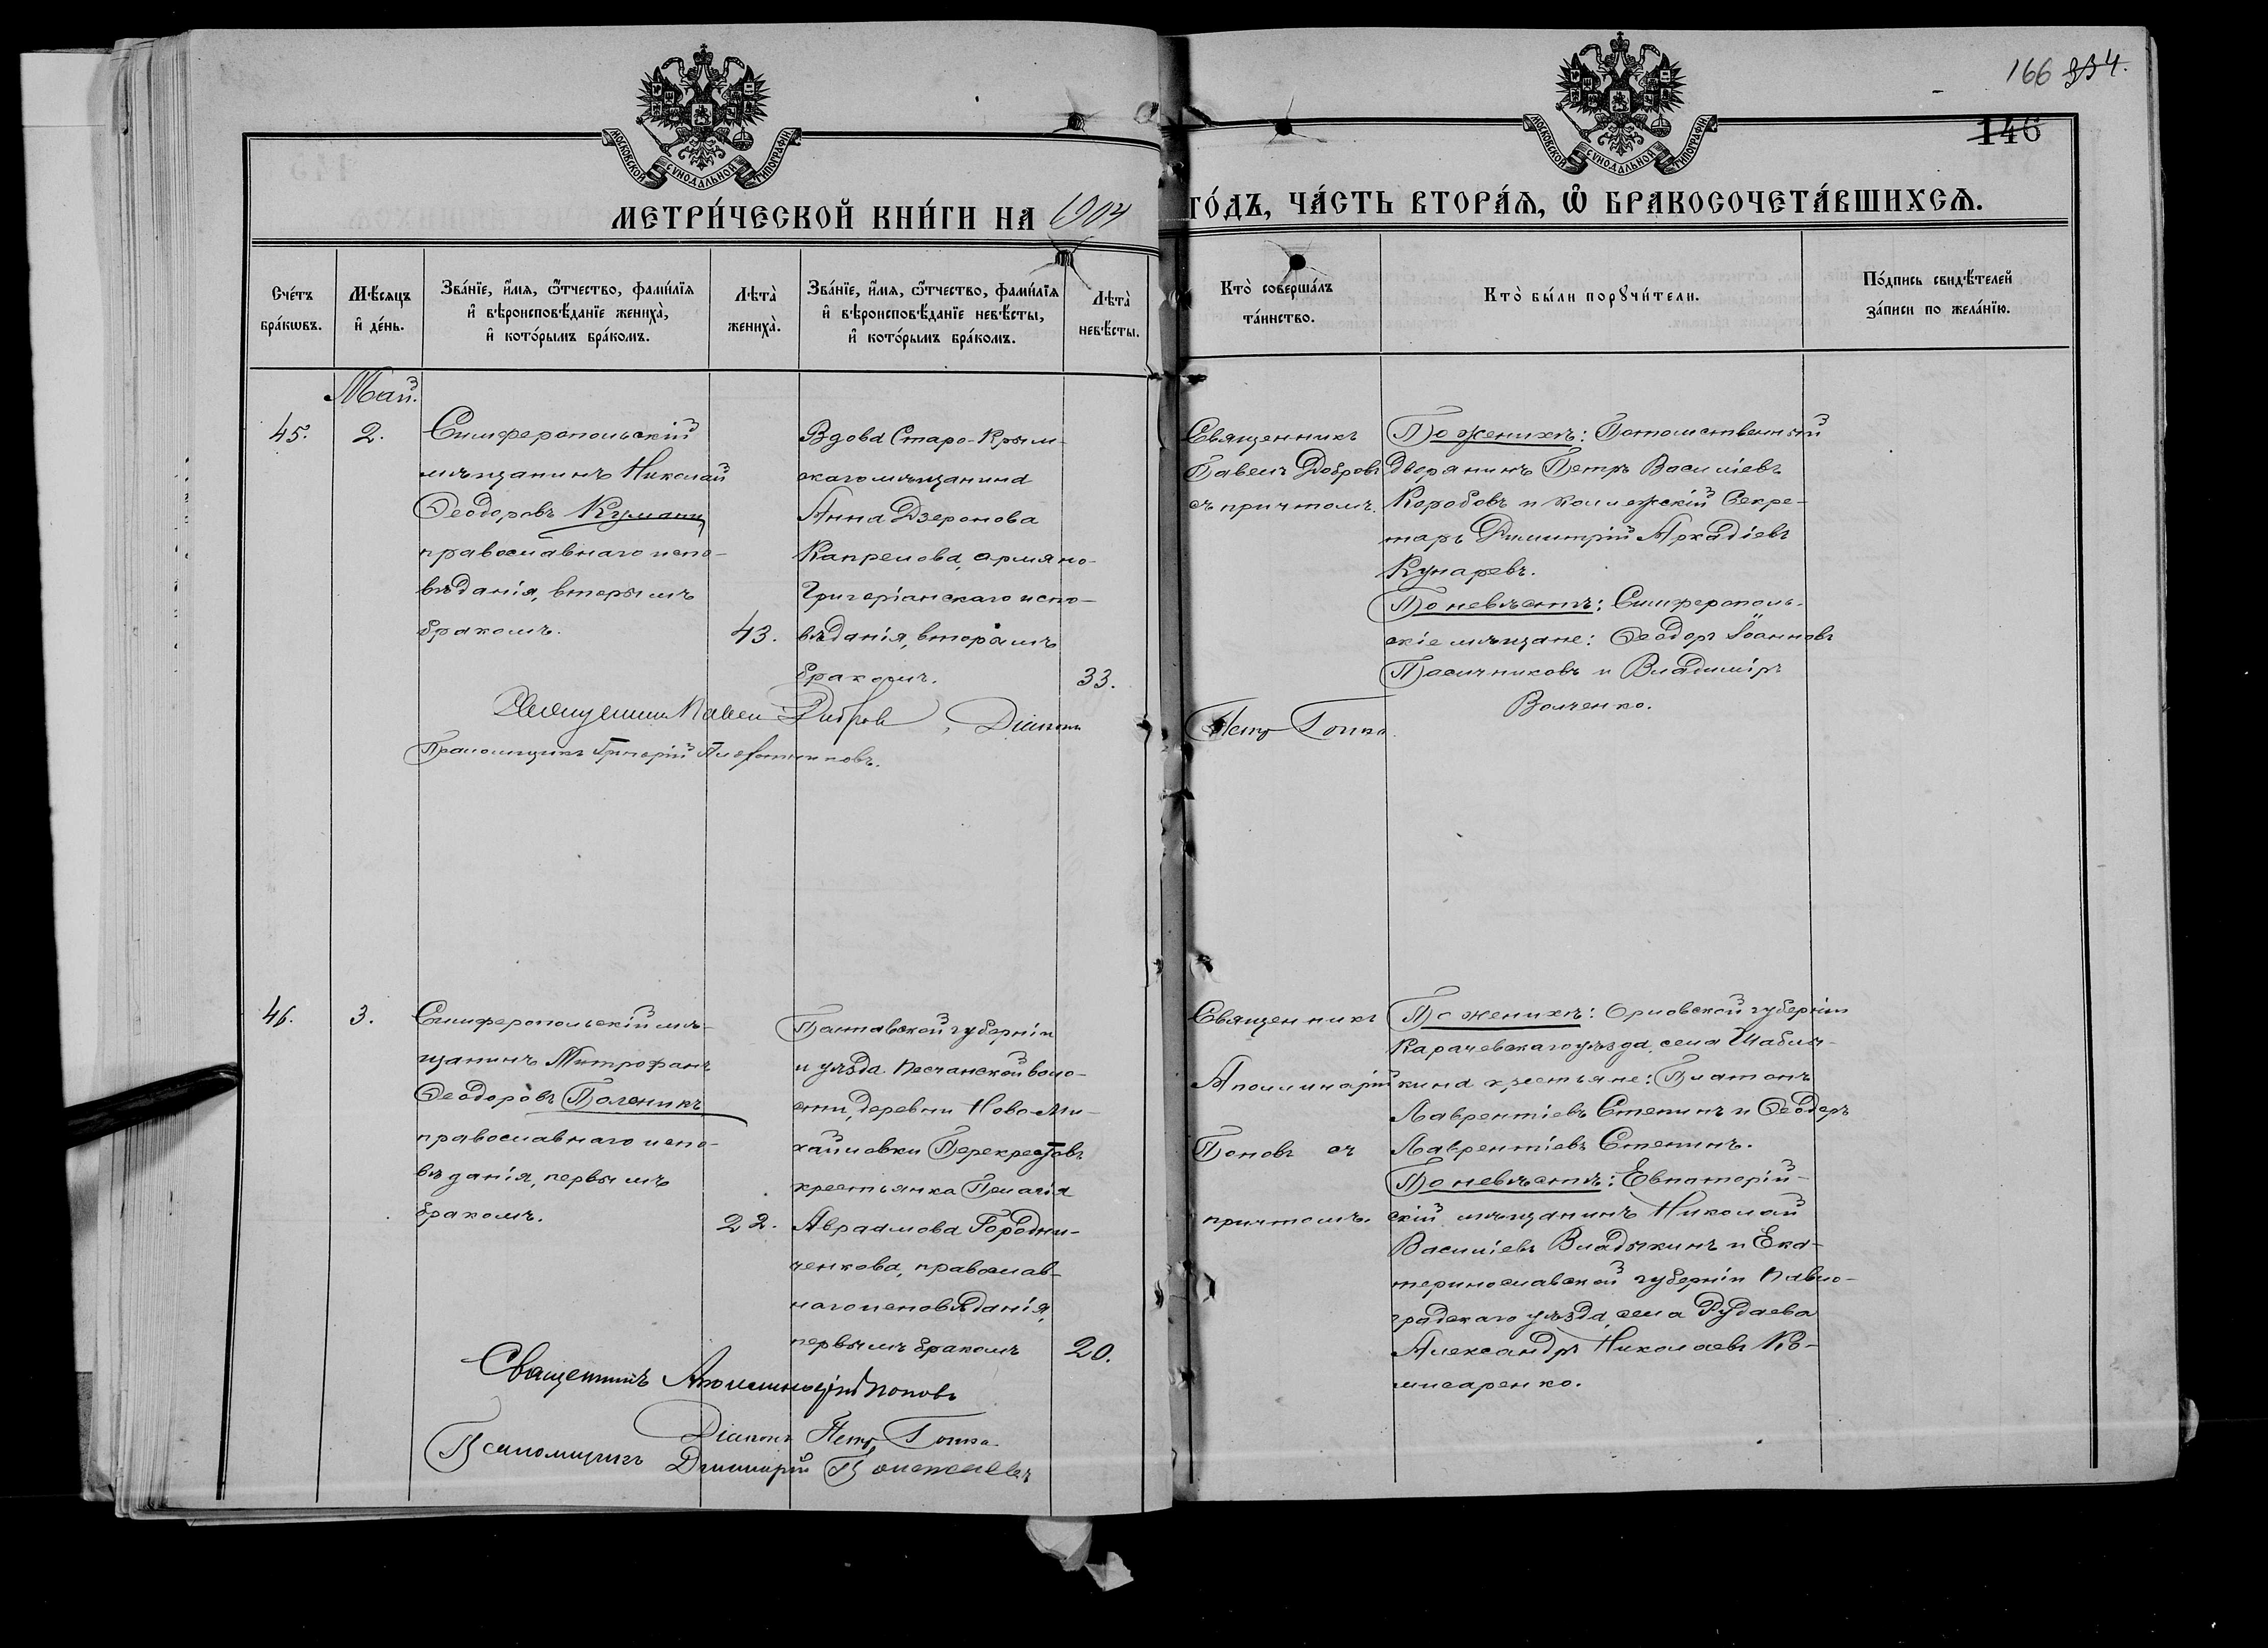 166 334.
146
МОСКОВСКОЙ СѴНОДАЛЬНОЙ ТИПОГРАФІИ
МОСКОВСКОЙ СѴНОДАЛЬНОЙ ТИПОГРАФІИ
МЕТРИ́ЧЕСКОЙ КНИ́ГИ НА 1904 ГО́ДЪ, ЧА́СТЬ ВТОРА́Ѧ, Ѽ БРАКОСОЧЕТА́ВШИХСѦ.
Сче́тъ
бра́кѡвъ.
Мѣ́сяцъ
и҆ де́нь.
Зва́нїе, и҆́мя, ѻ҆́тчество, фами́лїя
и҆ вѣроисповѣ́данїе жениха̀,
и҆ кото́рымъ бра́комъ.
Лѣта̀
жениха̀.
Зва́нїе, и҆́мя, ѻ҆́тчество, фами́лїя
и҆ вѣроисповѣ́данїе невѣ́сты,
и҆ кото́рымъ бра́комъ.
Лѣта̀
невѣ́сты.
Кто̀ соверша́лъ
та́инство.
Кто̀ бы́ли порꙋчи́тели.
По́дпись свидѣ́телей
за́писи по жела́нїю.
Май.
45.
2.
Симферопольскій
мѣщанинъ Николай
Ѳеодоровъ
православнаго испо-
вѣданія, вторымъ
бракомъ.
43.
Вдова Старо-Крым-
скаго мѣщанина
Анна Дзеронова
Капрелова, армяно-
Григоріанскаго испо-
вѣданія, вторымъ
бракомъ.
33.
Священникъ
Павелъ Добровъ
съ причтомъ.
По женихѣ: Потомственный
дворянинъ Петръ Василіевъ
Коробовъ и коллежскій Секре-
тарь Димитрій Аркадіевъ
Кунаревъ.
По невѣстѣ: Симферополь-
скіе мѣщане: Ѳеодоръ Іоанновъ
Пасичниковъ и Владиміръ
Волченко.
Священникъ Павелъ Добровъ, Діаконъ Петръ
Псаломщикъ Григорій Плотниковъ.
46.
3.
Симферопольскій мѣ-
щанинъ Митрофанъ
Ѳеодоровъ
православнаго испо-
вѣданія, первымъ
бракомъ.
22.
Полтавской губерніи
и уѣзда Песчанской воло-
сти, деревни Ново-Ми-
хайловки Перекрестовъ
крестьянка Пелагія
Авраамова Городни-
ченкова, православ-
наго исповѣданія,
первымъ бракомъ
20.
Священникъ
Аполлинарій
Поповъ съ
причтомъ.
По женихѣ: Орловской губерніи
Карачевскаго уѣзда, села Шабли-
кина крестьяне: Платонъ
Лаврентіевъ Степинъ и Ѳеодоръ
Лаврентіевъ Степинъ.
По невѣстѣ: Евпаторій-
скій мѣщанинъ Николай
Василіевъ Владыкинъ и Ека-
теринославской губерніи Павло-
градскаго уѣзда, села Рудаева
Александръ Николаевъ Ко-
мисаренко.
Священникъ Аполлинарій Поповъ
Діаконъ Петръ
Псаломщикъ Димитрій